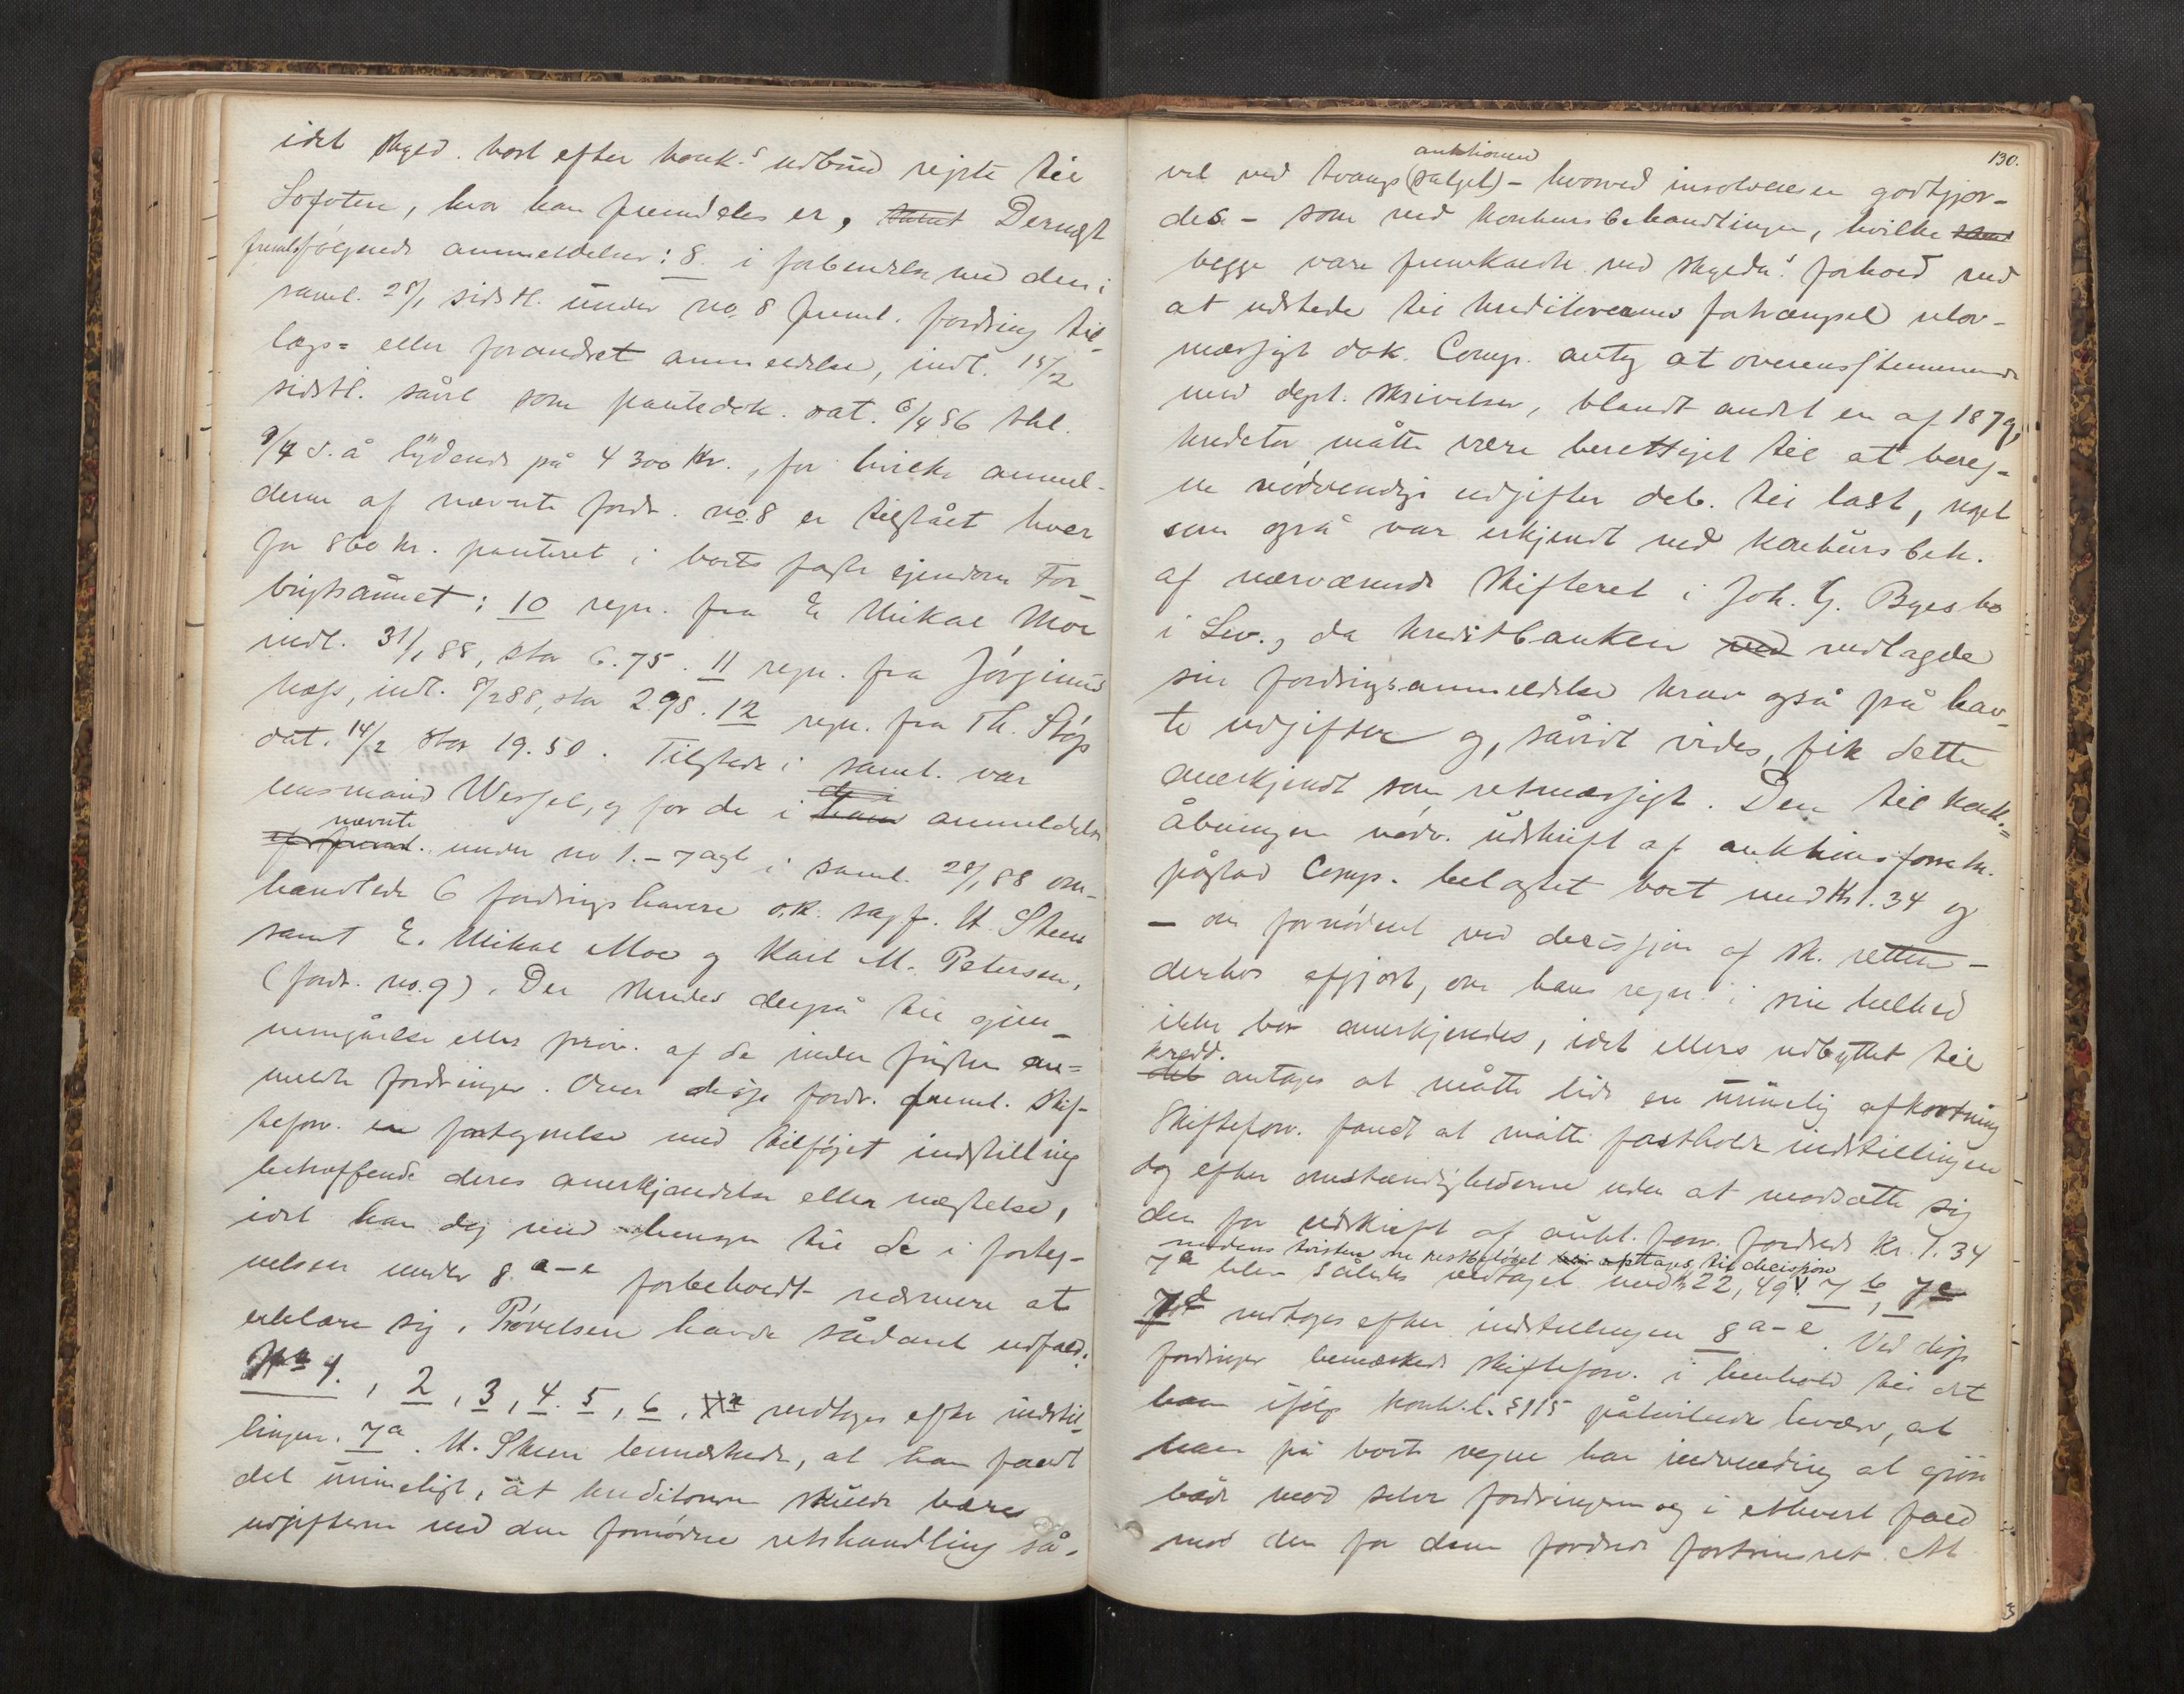 idet skyld. kort efter konk.s udbrud rejste til
Lofoten, hvor han fremdeles er, samt Dernæst
fremls følgende anmeldelser: 8. i forbindelse med den i
saml. 28/1 sidstl. under no. 8 freml. fordring til-
lægs- eller forandret anmeldelse, indl. 15/2
sidstl. såvel som pantedok. dat. 6/4 86 thl.
9/4 s. å lydende på 4300 Kr., for hvilke anmel-
derne af nævnte fordr. no. 8 er tilstået hver
for 860 kr. panteret i boets faste ejendom For-
bigsaunet; 10 regn. fra E Mikal Moe
indl. 31/1 88, stor 6.75. 11 regn. fra Jørginus
Næss, indl. 8/2 88, stor 2.98. 12 regn. fra Th. Støp
dat. 14/2 stor 19.50. Tilstede i saml. var
lensmand Wessel, og for de i anmeldelse
nævnte
under no 1.-7 agt i saml. 28/1 88 om-
handlede 6 fordringshavere o.r. sagf. U. Steen
samt E. Mikal Moe og Karl M. Petersen,
(fordr. no. 9). Der skredes derpå til gjen-
nemgåelse eller prøv. af de inden fristen an-
meldte fordringer. Over disse fordr. freml. skif-
teforv. en fortegnelse med tilføjet indstilling
betræffende deres anerkjendelse eller nægtelse,
idet han dog med hensyn til de i forteg-
nelsen under 8 a-e forbeholdt nærmere at
erklære sig. Prøvelsen havde sådant udfald:
No 1., 2, 3, 4. 5, 6, vedtoges efter indstil-
lingen. 7a. U. Steen bemærkede, at han fandt
det urimeligt, at kreditorerne skulde bære
udgifterne ved den fornødne retshandling så-
130.
auktionen
vel ved tvangs(salget) - hvorved insolvensen godtgjor-
des - som ved konkursbehandlingen, hvilke
begge vare fremkaldte ved skyldn.s forhold med
at udstede til kreditorernes fortrængsel ulov-
mæssigt dok. Comp. antog at overensstemmende
med dept. skrivelser, blandt andet en af 1879,
kreditor måtte være berettiget til at bereg-
ne nødvendige udgifter deb. til last, noget
som også var erkjendt ved konkursbeh.
af nærværende skifteret i Joh. G. Byes bo
i Lev., da kreditbanken ved vedtagde
sin fordringsanmeldelse krav også på hav-
te udgifter og, såvidt vides, fik dette
anerkjendt som retmæssigt. Den til konk.=
åbningen nødv. udskrift af auktionsforretn.
påstod Comp. belastet boet med Kr 1.34 og
- om fornødent ved decisjon af sk. retten -
derhos afgjort, om hans regn. i sin helhed
ikke bør anerkjendes, idet ellers udbyttet til
kredd.
det antages at måtte lide en urimelig afkortning
Skifteforv. fandt at måtte fastholde indstillingen
dog efter omstændighederne uden at modsætte sig
den for udskrift af aukt. forr. fordrede Kr. 1.34
medens tvisten om restbeløbet optages til decisjon
7a blev således vedtaget med kr 22,49. 7 b, 7 c
7 d vedtoges efter indstillingen 8 a-e. Ved disse
fordringer bemærkede skifteforv. i henhold til det
ham ifølge konk. l. § 115 påhvilende hverv, at
han på boets vegne har indvending at gjøre
både mod selve fordringerne og i ethvert fald
mod den for dem fordrede fortrinsret. At